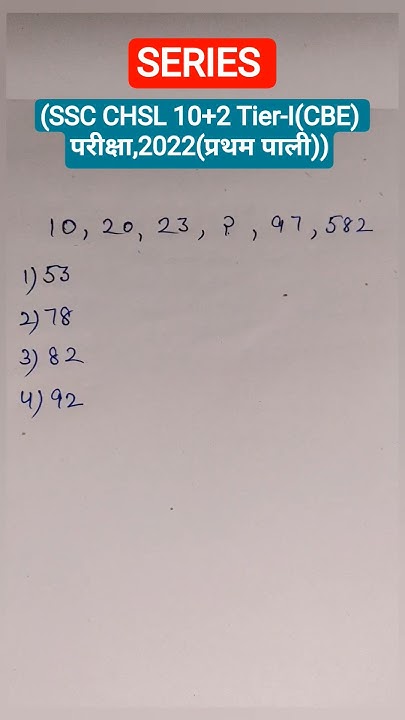 SERIES
(SSC CHSL 10+2 Tier-I(CBE)
परीक्षा,2022(प्रथम पाली))
10, 20, 23, ?, 97, 582
1) 53
2) 78
3) 82
4) 92